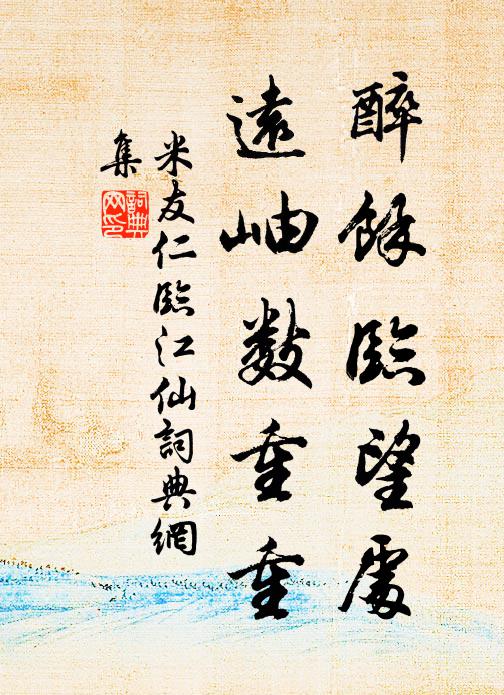 醉餘臨望處
遠岫數重重
米友仁臨江仙詞典網
集
詞典
网印